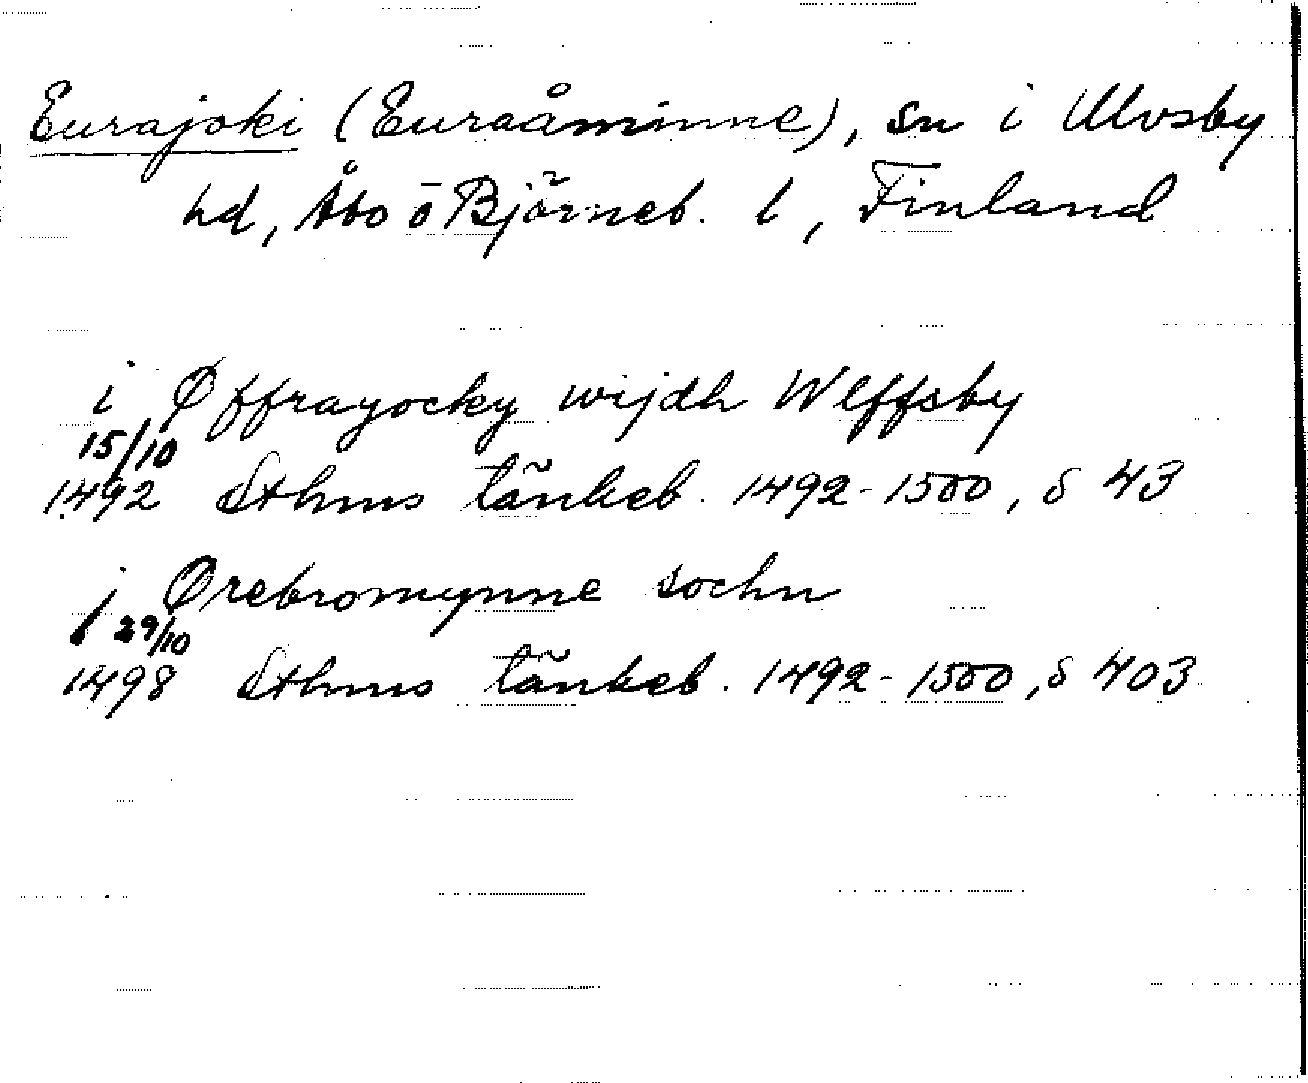 Eurajoki (Euraåminne), sn i Ulvsby
hd, Åbo o Björneb. l, Finland
i Øffrayocky wijdh Wlffsby
15/10
1492 Sthms tänkeb. 1492-1500, s 43
j Ørebromynne sochn
29/10
1498 Sthms tänkeb. 1492-1500, s 403